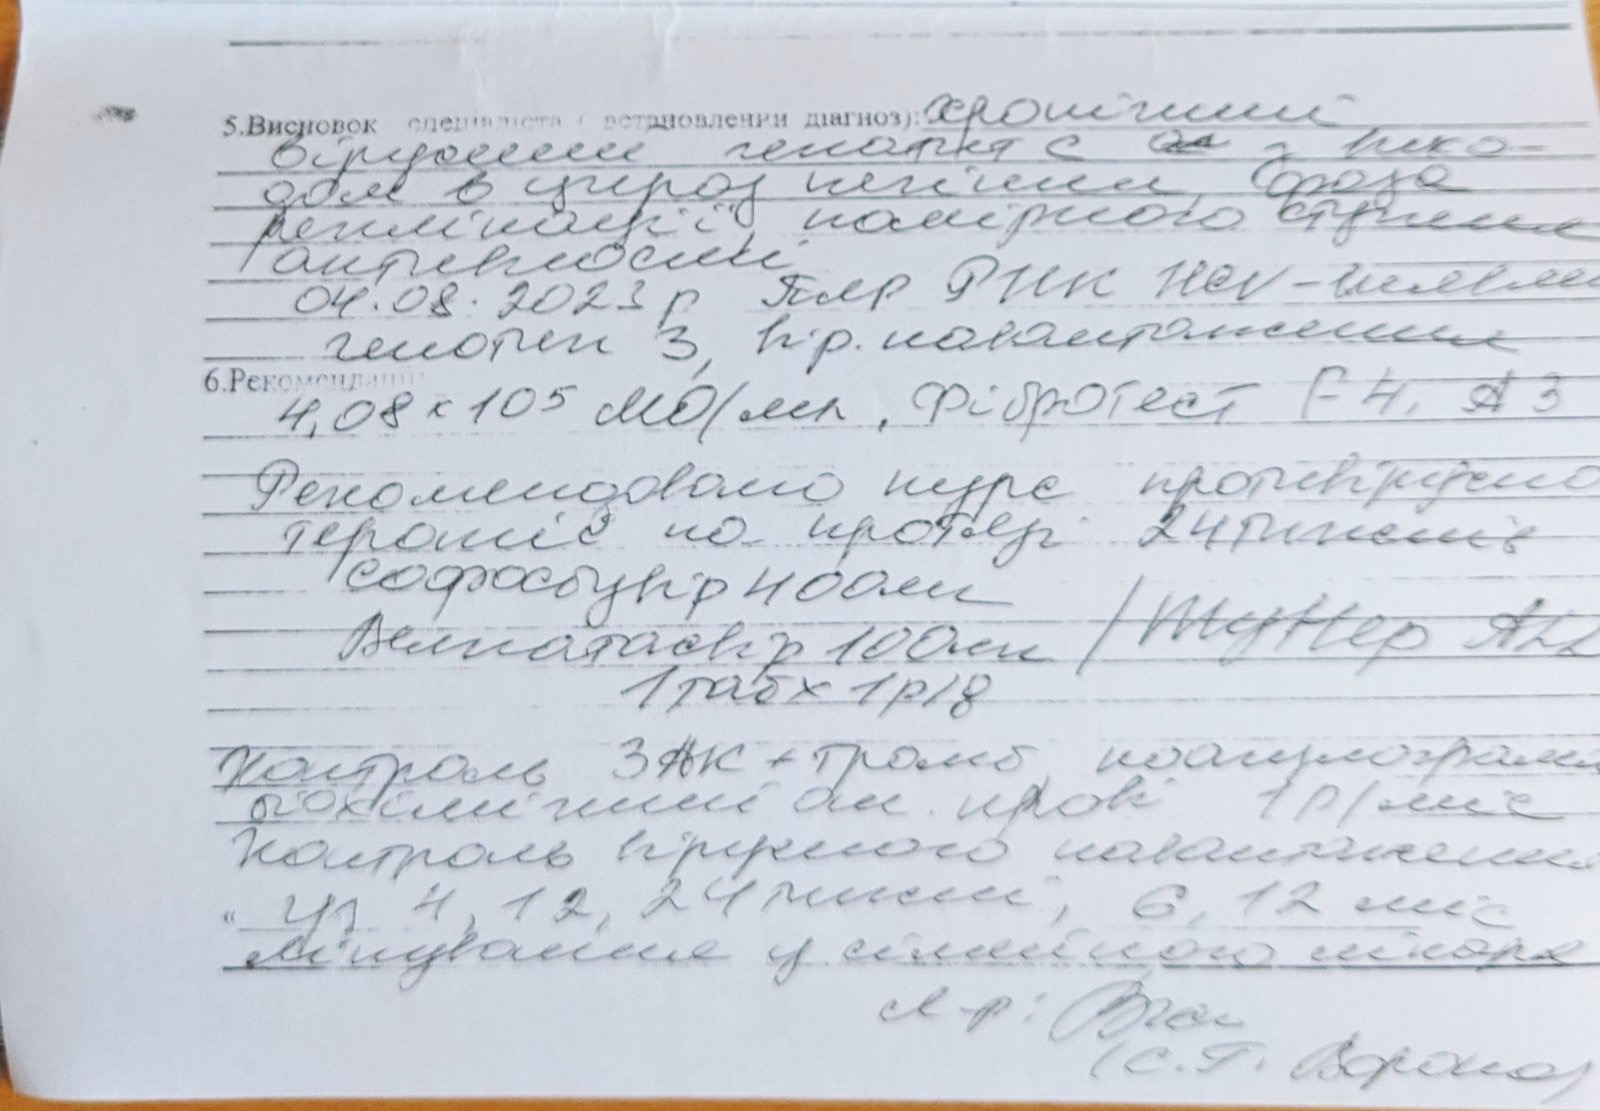 5.Висновок спеціаліста ( встановлений діагноз): Хронічний
вірусний гепатит С з вихо-
дом в цироз печінки, фаза
реплікації помірного ступеня
активності
04.08.2023 р ПЛР РНК HCV - виявлен
генотип 3, вір. навантаження
6.Рекомендації:
4,08 х 10⁵ МО/мл, Фібротест F 4, А 3
Рекомендовано курс противірусно
терапіє на протязі 24 тижнів
софосбувір 400 мг
Велпатасвір 100 мг /
1 таб х 1 р/д
Контроль ЗАК + тромб, коагулограма
біохімічний ан. крові 1 р/міс
Контроль вірусного навантаження
чз 4, 12, 24 тижні, 6, 12 міс
лікування у сімейного лікаря
л-р:
(С.Г.